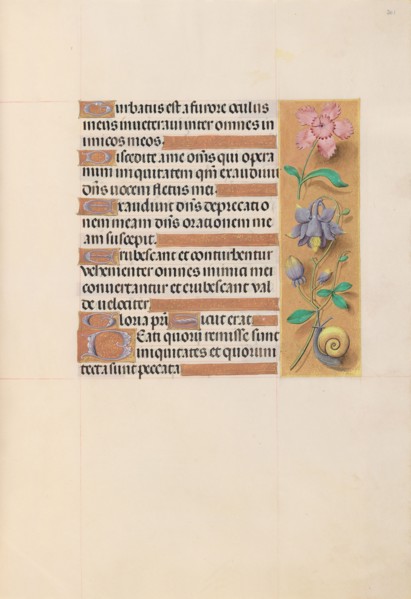 Turbatus est a furore oculus
meus inveteraui inter omnes in
imicos meos.
Discedite a me oms̄ qui opera
mini iniquitatem qm̄ exaudiuit
dn̄s uocem fletus mei.
Exaudiuit dn̄s deprecatio
nem meam dn̄s orationem me
am suscepit.
Erubescant et conturbentur
vehementer omnes inimici mei
conuertantur et erubescant val
de uelociter.
Gloria pr̄i Sicut erat.
Beati quorū remisse sunt
iniquitates et quorum
tecta sunt peccata